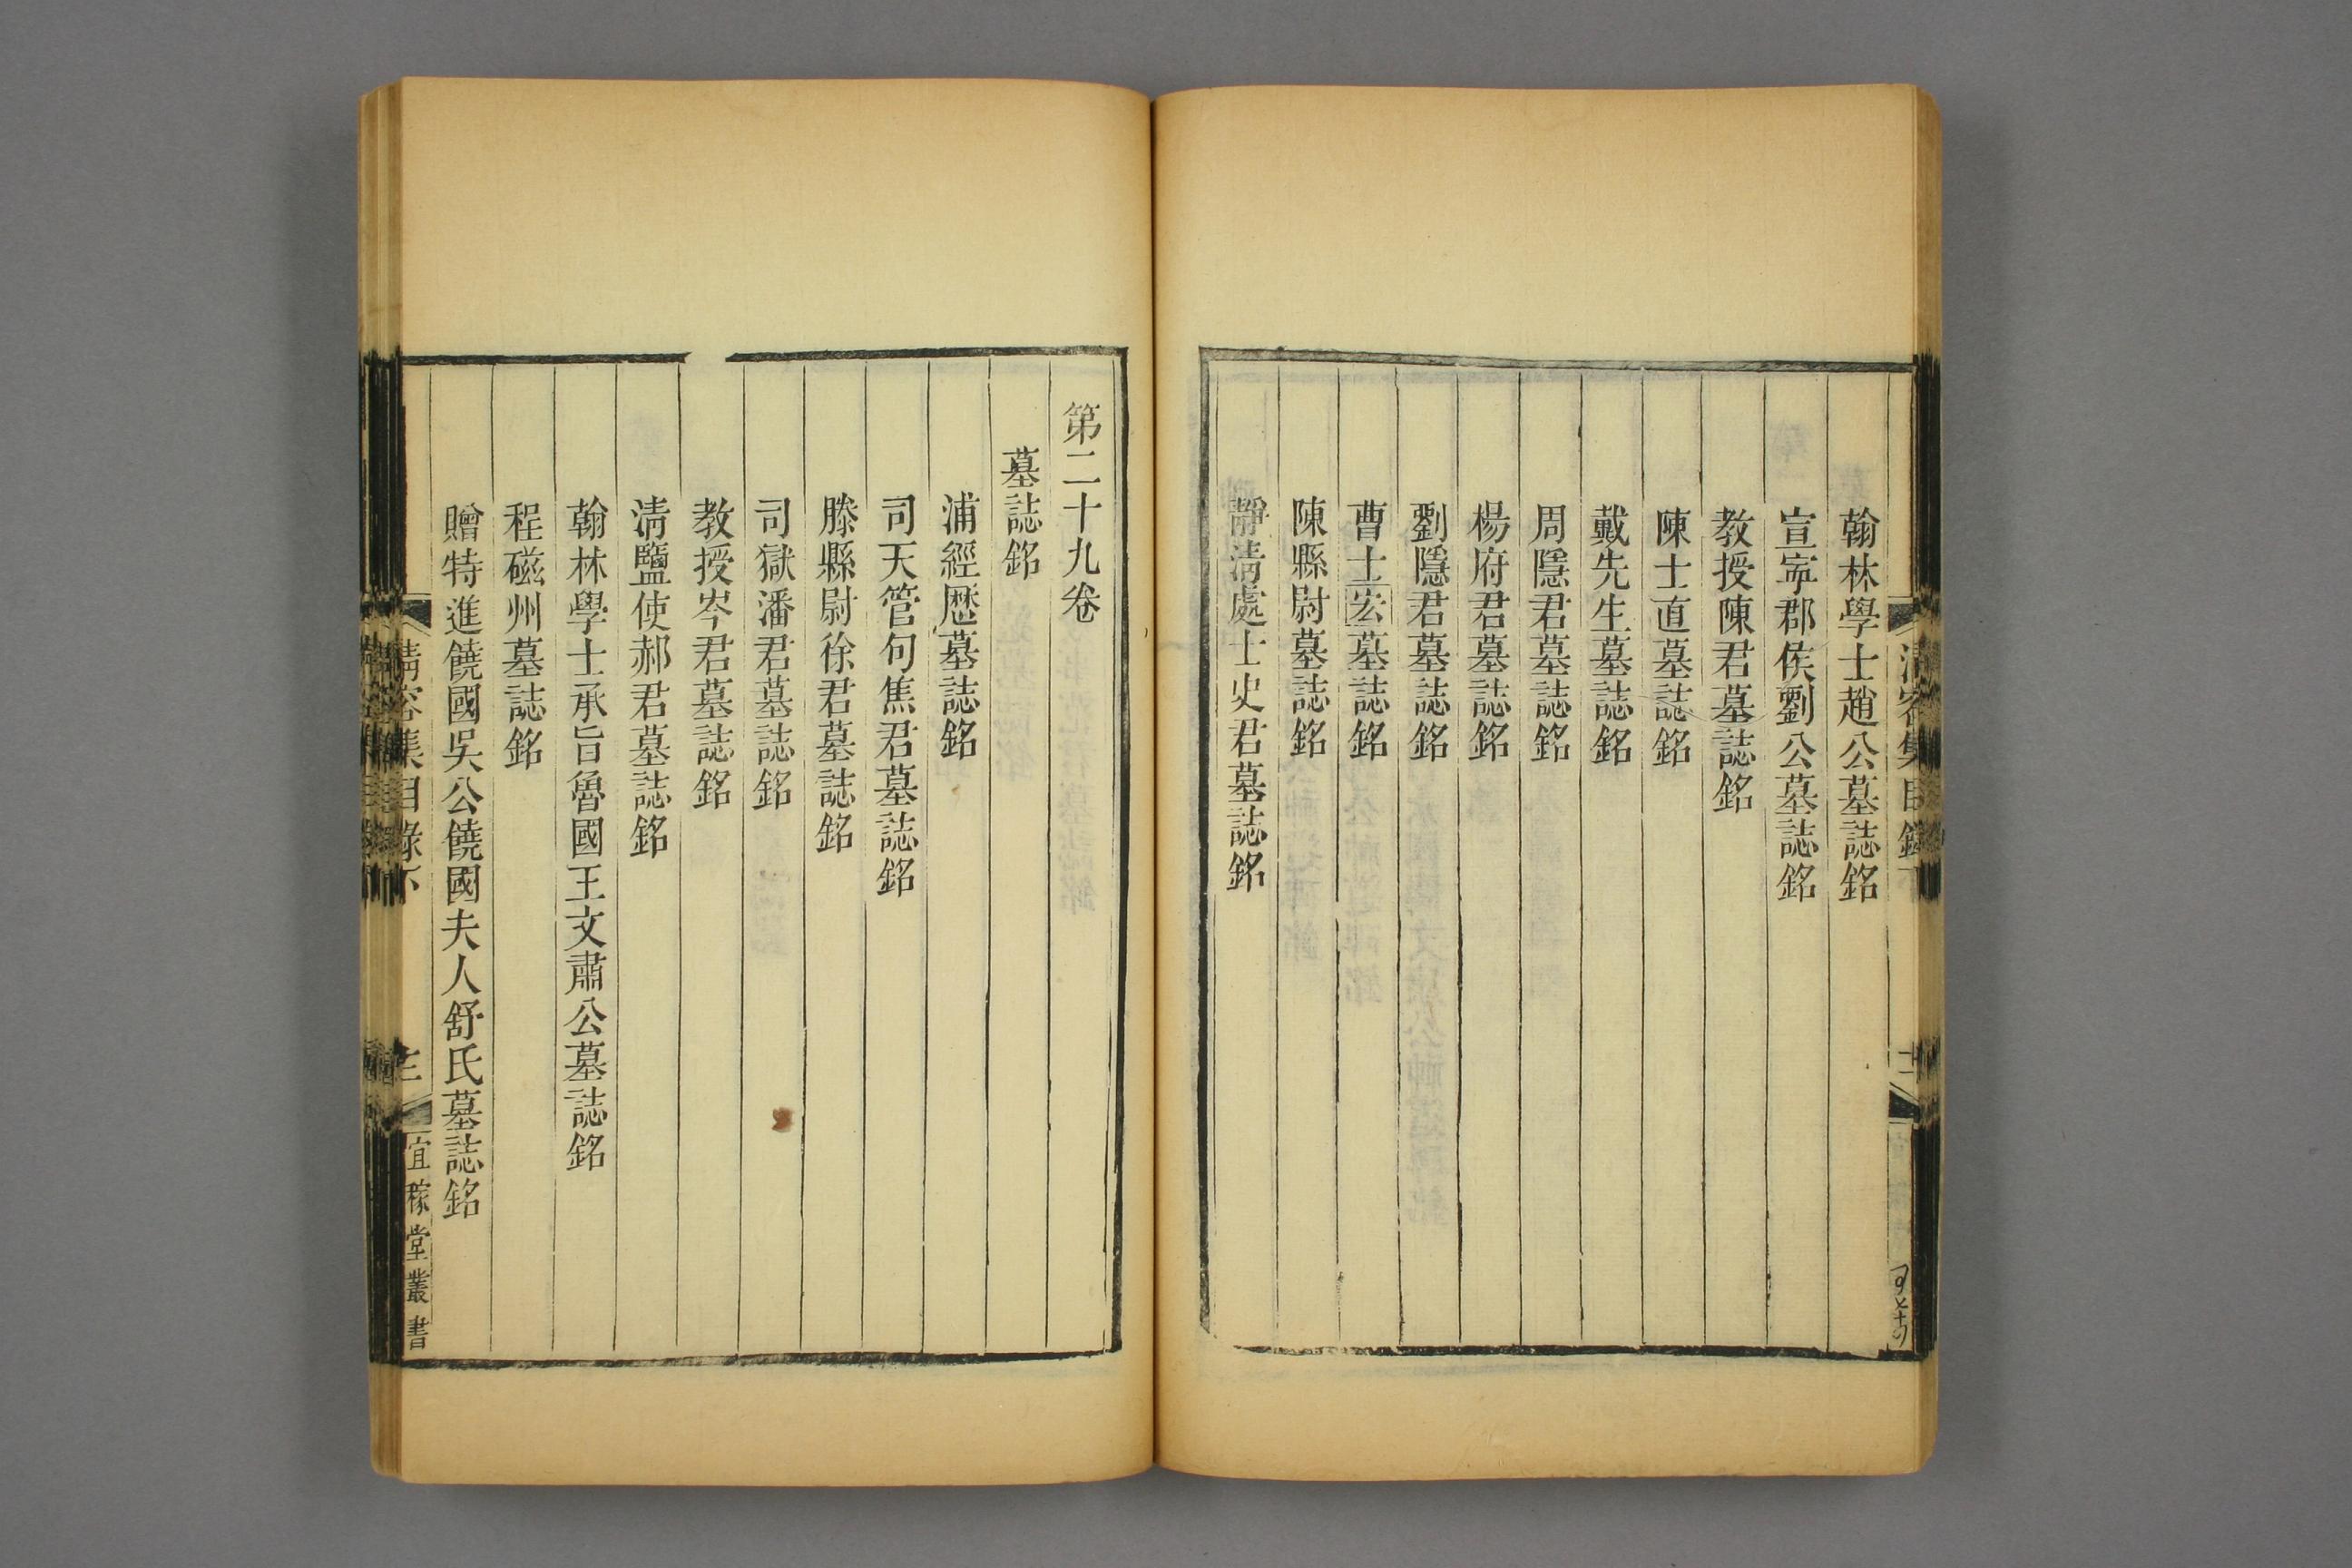 翰林學士趙公墓誌銘
宣寧郡侯劉公墓誌銘
教授陳君墓誌銘
陳士直墓誌銘
戴先生墓誌銘
周隱君墓誌銘
楊府君墓誌銘
劉隱君墓誌銘
曹士宏墓誌銘
陳縣尉墓誌銘
靜淸處士史君墓誌銘
第二十九卷
墓誌銘
浦經歷墓誌銘
司天管句焦君墓誌銘
滕縣尉徐君墓誌銘
司獄潘君墓誌銘
教授岑君墓誌銘
淸鹽使郝君墓誌銘
翰林學士承旨魯國王文肅公墓誌銘
程磁州墓誌銘
贈特進饒國吳公饒國夫人舒氏墓誌銘
清容集目錄下
宜稼堂叢書